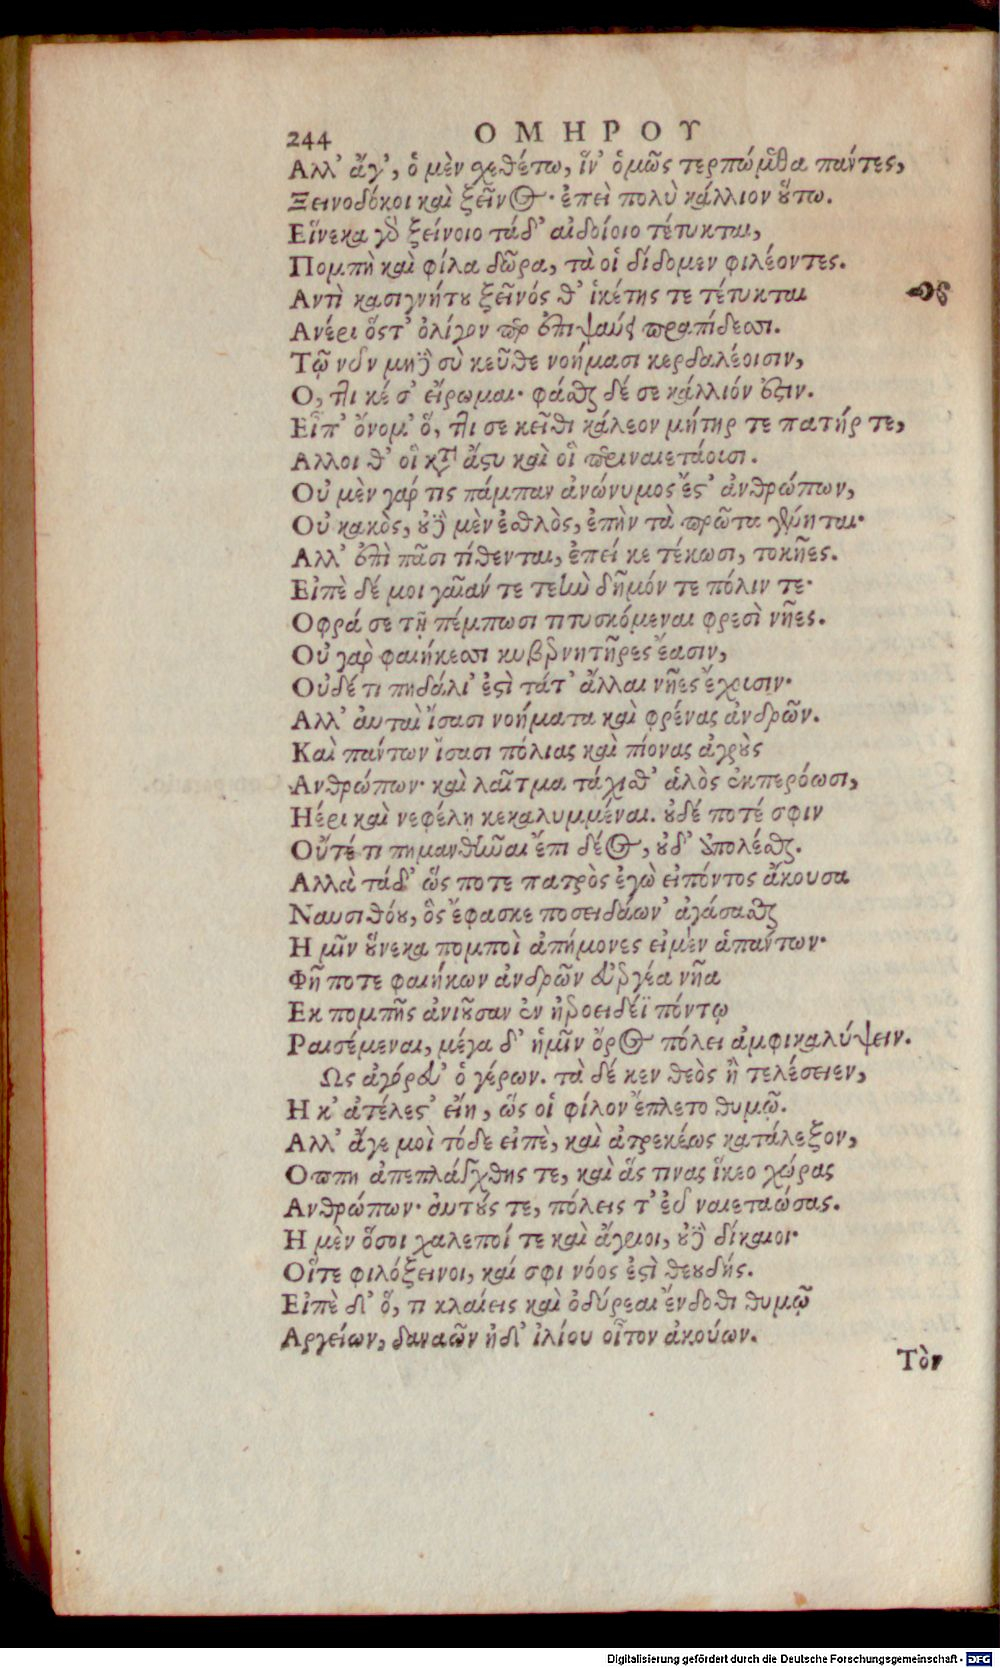 244 ΟΜΗΡΟΥ
Αλλ' ἄγ', ὁ μὲν χεθέτω, ἵν' ὁμῶς τερπώμεθα πάντες,
Ξεινοδόκοι καὶ ξεῖνος· ἐπεὶ πολὺ κάλλιον οὕτω.
Εἵνεκα γὰρ ξείνοιο τάδ' αἰδοίοιο τέτυκται,
Πομπὴ καὶ φίλα δῶρα, τὰ οἱ δίδομεν φιλέοντες.
Αντὶ κασιγνήτου ξεῖνός θ' ἱκέτης τε τέτυκται
Ανέρι ὅστ' ὀλίγον περ ἐπιψαύει πραπίδεσσι.
Τῷ νῦν μηδὲ σὺ κεῦθε νοήμασι κερδαλέοισιν,
Ο, ττι κέ σ' εἴρωμαι· φάσθαι δέ σε κάλλιόν ἐστιν.
Εἶπ' ὄνομ' ὅ, ττι σε κεῖθι κάλεον μήτηρ τε πατήρ τε,
Αλλοι θ' οἳ κατὰ ἄστυ καὶ οἳ περιναιετάουσι.
Οὐ μὲν γάρ τις πάμπαν ἀνώνυμος ἔστ' ἀνθρώπων,
Οὐ κακὸς, οὐδὲ μὲν ἐσθλὸς, ἐπὴν τὰ πρῶτα γένηται·
Αλλ' ἐπὶ πᾶσι τίθενται, ἐπεί κε τέκωσι, τοκῆες.
Εἰπὲ δέ μοι γαῖαν τε τεὴν δῆμόν τε πόλιν τε·
Οφρά σε τῇ πέμπωσι τιτυσκόμεναι φρεσὶ νῆες.
Οὐ γὰρ φαιήκεσσι κυβερνητῆρες ἔασιν,
Οὐδέ τι πηδάλι' ἐστὶ τάτ' ἄλλαι νῆες ἔχουσιν·
Αλλ' ἀυταὶ ἴσασι νοήματα καὶ φρένας ἀνδρῶν.
Καὶ πάντων ἴσασι πόλιας καὶ πίονας ἀγροὺς
Ανθρώπων· καὶ λαῖτμα τάχισθ' ἁλὸς ἐκπερόωσι,
Ηέρι καὶ νεφέλη κεκαλυμμέναι. οὐδέ ποτέ σφιν
Οὔτέ τι πημανθῆναι ἔπι δέος, οὐδ' ἀπολέσθαι.
Αλλὰ τάδ' ὥς ποτε πατρὸς ἐγὼ εἰπόντος ἄκουσα
Ναυσιθόου, ὃς ἔφασκε ποσειδάων' ἀγάσασθαι
Η μῖν οὕνεκα πομποὶ ἀπήμονες εἰμὲν ἁπάντων·
Φῆ ποτε φαιήκων ἀνδρῶν εὐεργέα νῆα
Εκ πομπῆς ἀνιοῦσαν ἐν ἠεροειδέϊ πόντῳ
Ραισέμεναι, μέγα δ' ἡμῖν ὄρος πόλει ἀμφικαλύψειν.
Ως ἀγόρευ' ὁ γέρων. τὰ δέ κεν θεὸς ἢ τελέσειεν,
Η κ' ἀτέλεστ' εἴη, ὥς οἱ φίλον ἔπλετο θυμῷ.
Αλλ' ἄγε μοὶ τόδε εἰπὲ, καὶ ἀτρεκέως κατάλεξον,
Οππη ἀπεπλάγχθης τε, καὶ ἅς τινας ἵκεο χώρας
Ανθρώπων· ἀυτούς τε, πόλεις τ' εὖ ναιεταώσας.
Η μὲν ὅσοι χαλεποί τε καὶ ἄγριοι, οὐδὲ δίκαιοι·
Οἵτε φιλόξεινοι, καί σφι νόος ἐστὶ θεουδής.
Εἰπὲ δ' ὅ, τι κλαίεις καὶ ὀδύρεαι ἔνδοθι θυμῷ
Αργείων, δαναῶν ἠδ' ἰλίου οἶτον ἀκούων.
Τὸν
Digitalisierung gefördert durch die Deutsche Forschungsgemeinschaft - DFG